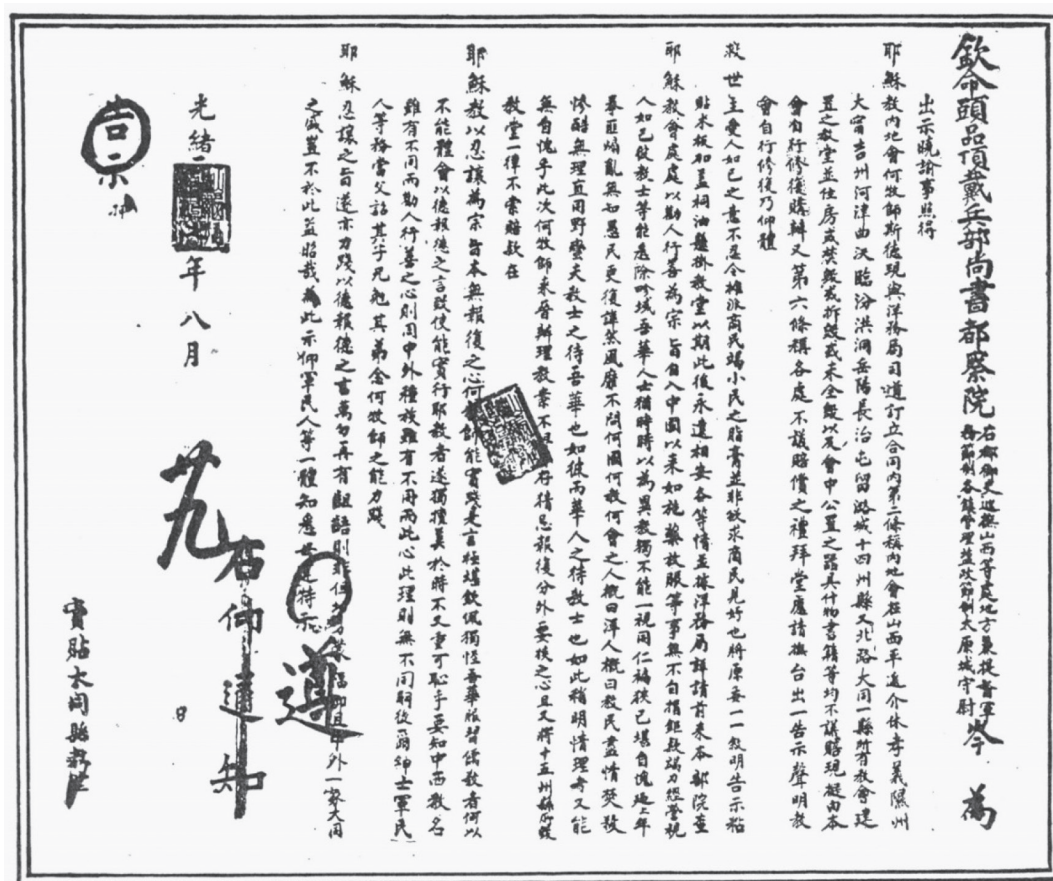 欽命頭品頂戴兵部尚書都察院右都御史巡撫山西等處地方兼提督軍務節制各鎮管理鹽政節制太原城守尉岑 為
出示曉諭事照得
耶穌教內地會何牧師斯德現與洋務局司道訂立合同內第二條稱內地會在山西平遙介休孝義隰州
大甯吉州河津曲沃臨汾洪洞岳陽長治屯留潞城十四州縣又北路大同一縣所有教會建
置之教堂並住房或焚毀或拆毀或未全毀以及會中公置之器具什物書籍等均不議賠現擬由本
會自行修復賤辦又第六條稱各處不議賠償之禮拜堂應請撫台出一告示聲明教
會自行修復乃仰體
救世主愛人如己之意不忍令攤派商民竭小民之脂膏並非故求商民見好也將原委一一敘明告示粘
貼木板如蓋油懸掛教堂以期此後永遠相安各等情並據洋務局詳請前來本部院查
耶穌教會處處以勸人行善為宗旨自入中國以來如施藥放賑等事無不自捐鉅款竭力經營視
人如己教士等能悉除畛域吾華人士猶時時以為異教獨不能一視同仁褊狹已堪自愧迨上年
拳匪煽亂無知愚民更復譁然風靡不問何國何教何會之人概曰洋人概曰教民盡情焚殺
慘酷無理直同野蠻夫教士之待吾華也如彼而華人之待教士也如此稍明情理者又能
無自愧乎此次何牧師來晉辦理教案不但存猜忌報復分外要挾之心且又將十五州縣所毀
教堂一律不索賠款在
耶穌教以忍讓為宗旨本無報復之心何牧師能實踐是言極堪欽佩獨怪吾華服習儒教者何以
不能體會以德報德之言致使能實行耶教者遂獨擅美於時不又重可恥乎要知中西教名
雖有不同而勸人行善之心則同中外種族雖有不同而此心此理則無不同嗣後爾紳士軍民
人等務當父詔其子兄勉其弟念何牧師之能力踐
耶穌忍讓之旨遂亦力踐以德報德之言萬勿再有齟語則中外一家大同
之盛豈不於此益昭哉為此示仰軍民人等一體知悉遵特示
遵
右仰通知
光緒年八月廿九
告示
實貼大同縣教堂